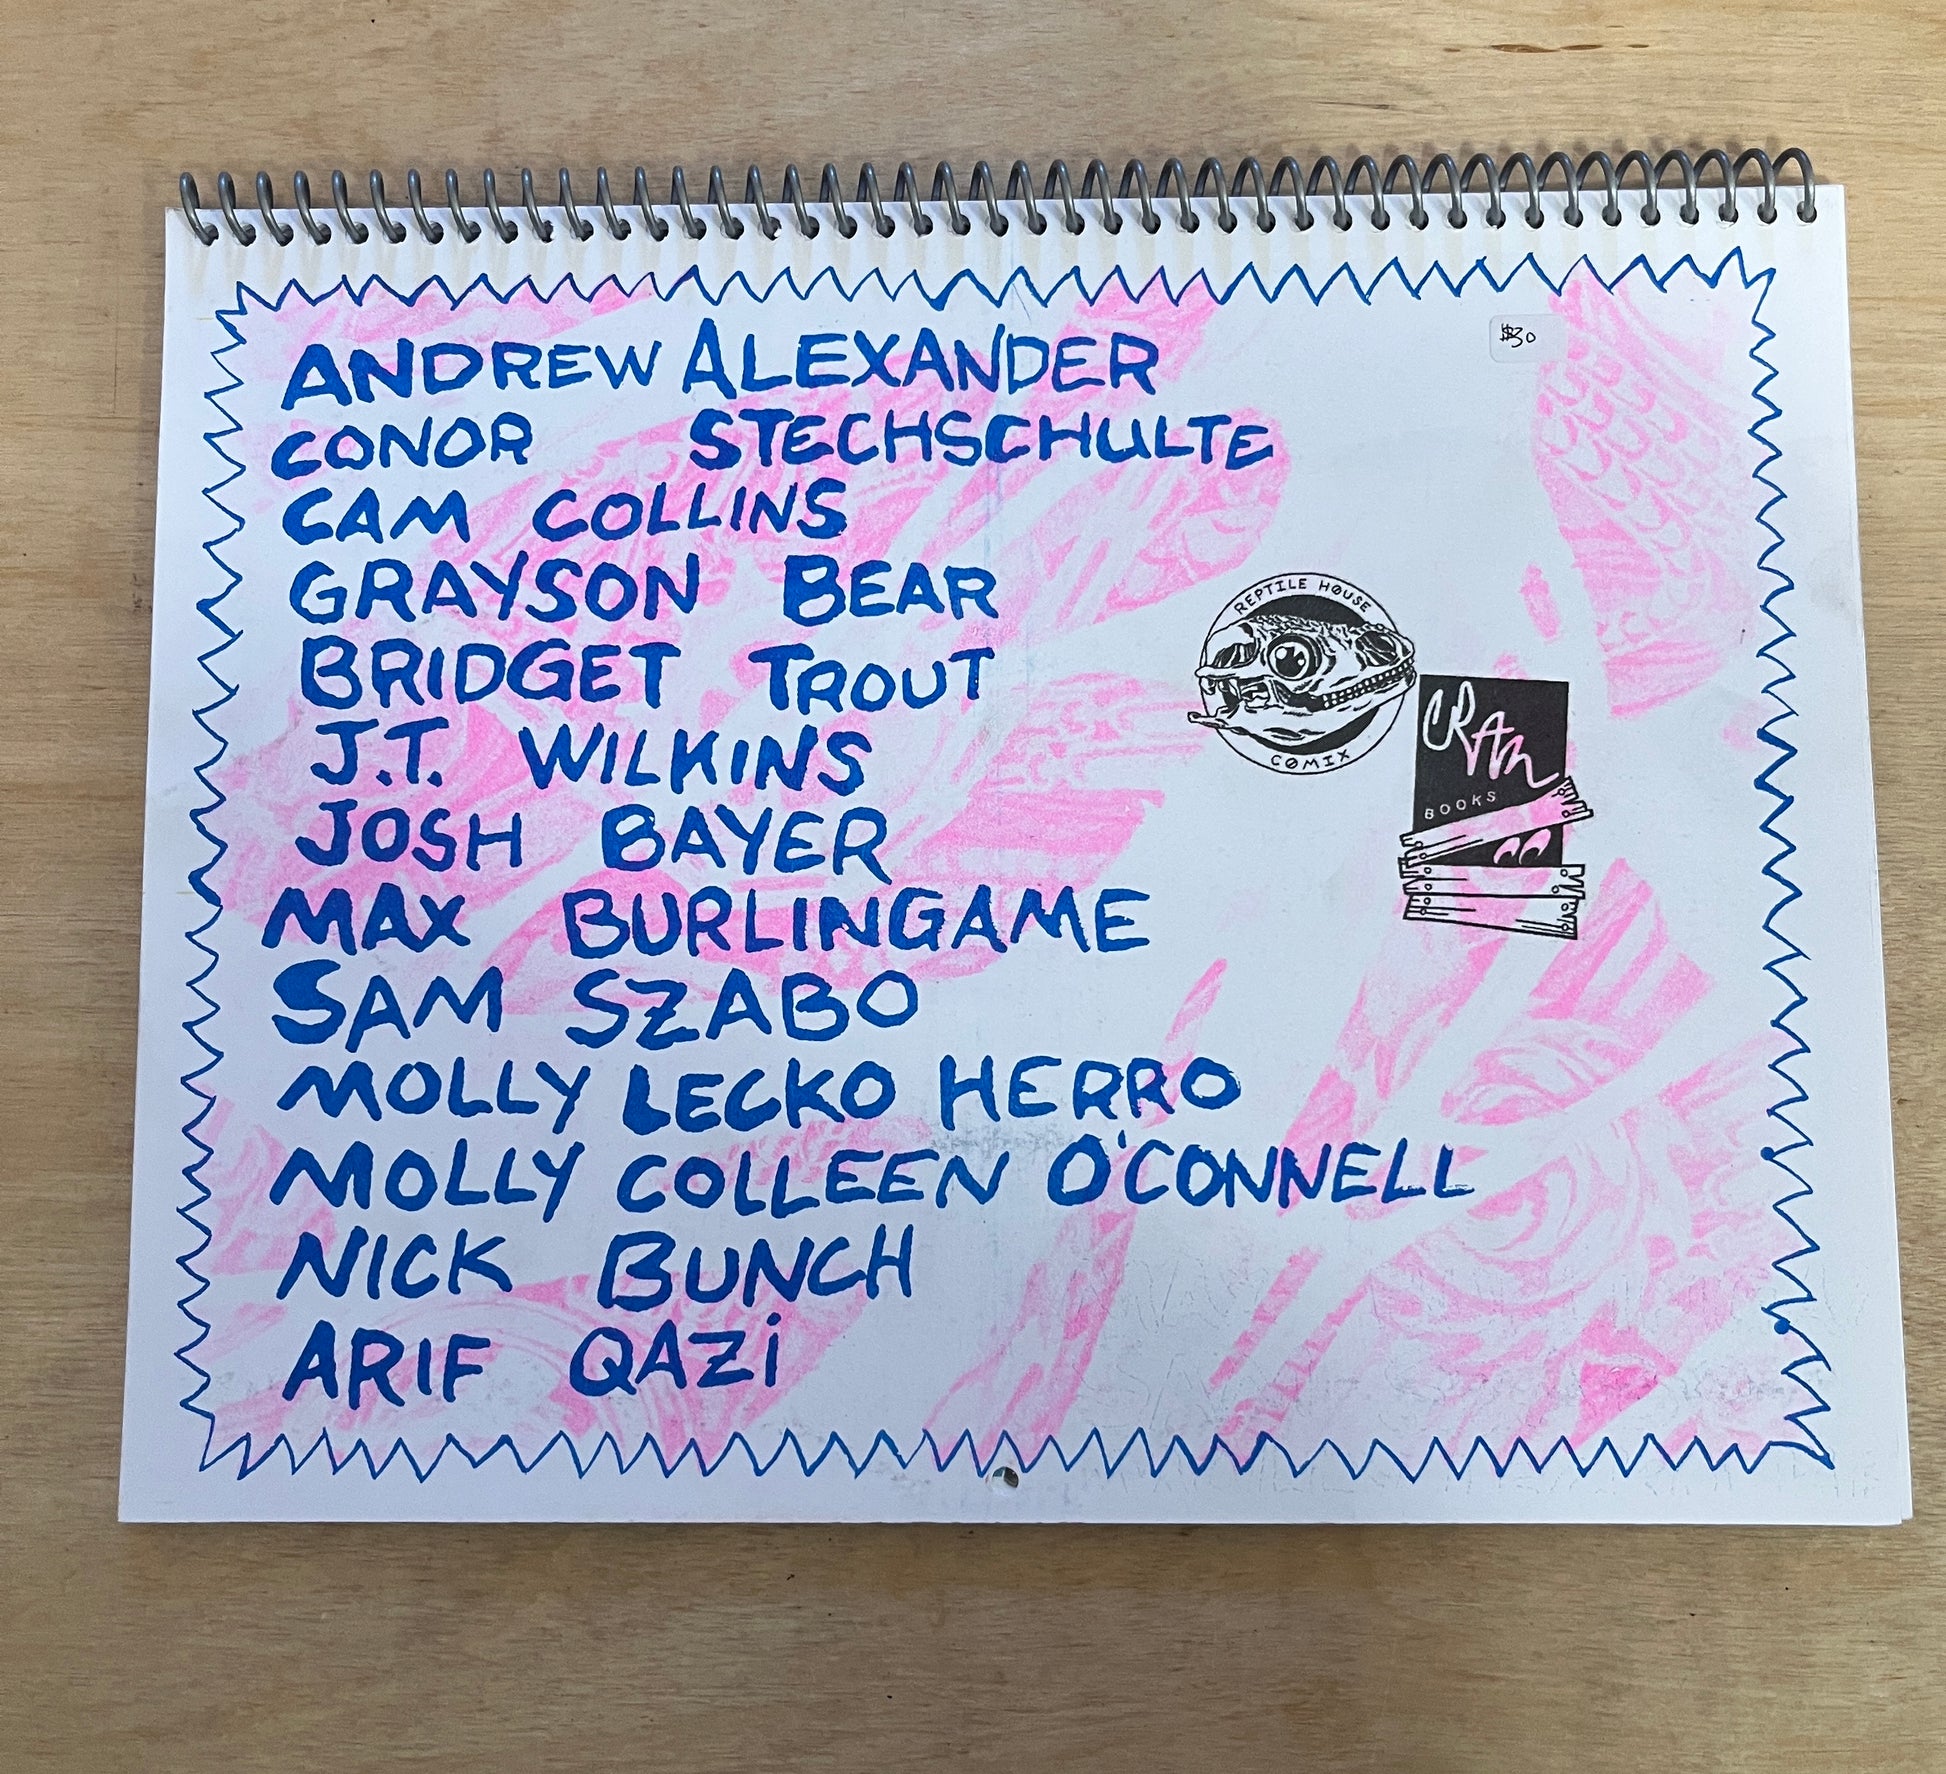 ANDREW ALEXANDER
$30
CONOR STECHSCHULTE
CAM COLLINS
GRAYSON BEAR
REPTILE HØUSE
CØMIX
BRIDGET TROUT
CRAM
BOOKS
J.T. WILKINS
JOSH BAYER
MAX BURLINGAME
SAM SZABO
MOLLY LECKO HERRO
MOLLY COLLEEN O'CONNELL
NICK BUNCH
ARIF QAZi